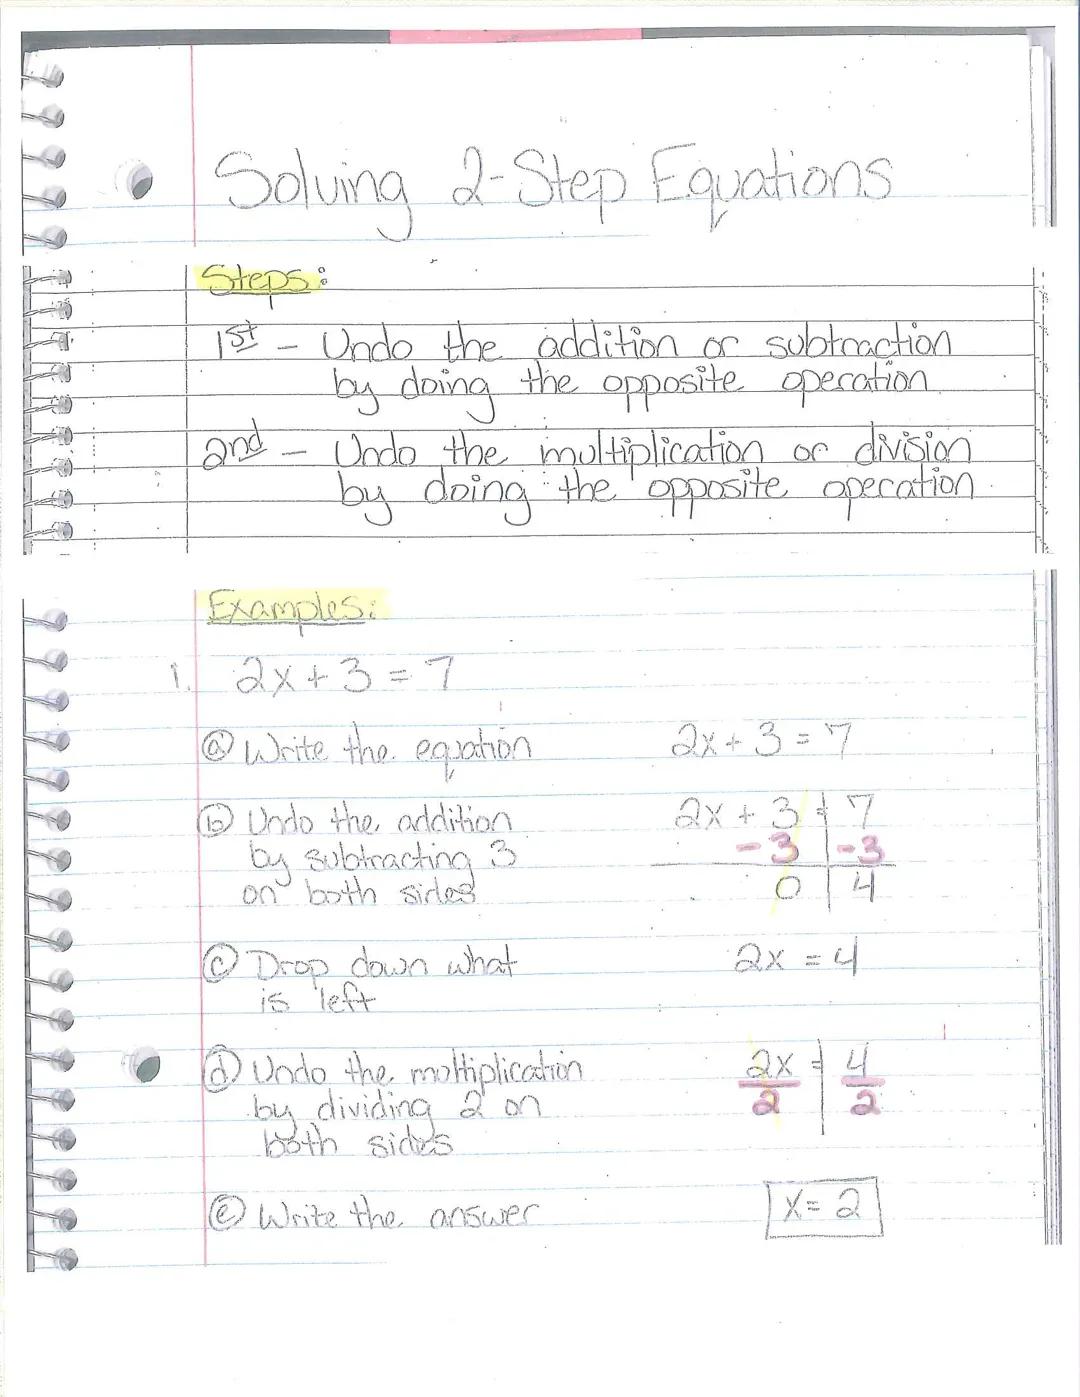 Solving 2-Step Equations
Steps:
1st - Undo the addition or subtraction
by doing the opposite operation
2nd - Undo the multiplication or division
by doing the opposite operation
Examples:
1. 2x + 3 = 7
ⓐ Write the equation 2x + 3 = 7
ⓑ Undo the addition 2x + 3 = 7
by subtracting 3 -3 | -3
on both sides 0 | 4
ⓒ Drop down what 2x = 4
is left
ⓓ Undo the multiplication 2x = 4
by dividing 2 on 2 | 2
both sides
ⓔ Write the answer x = 2